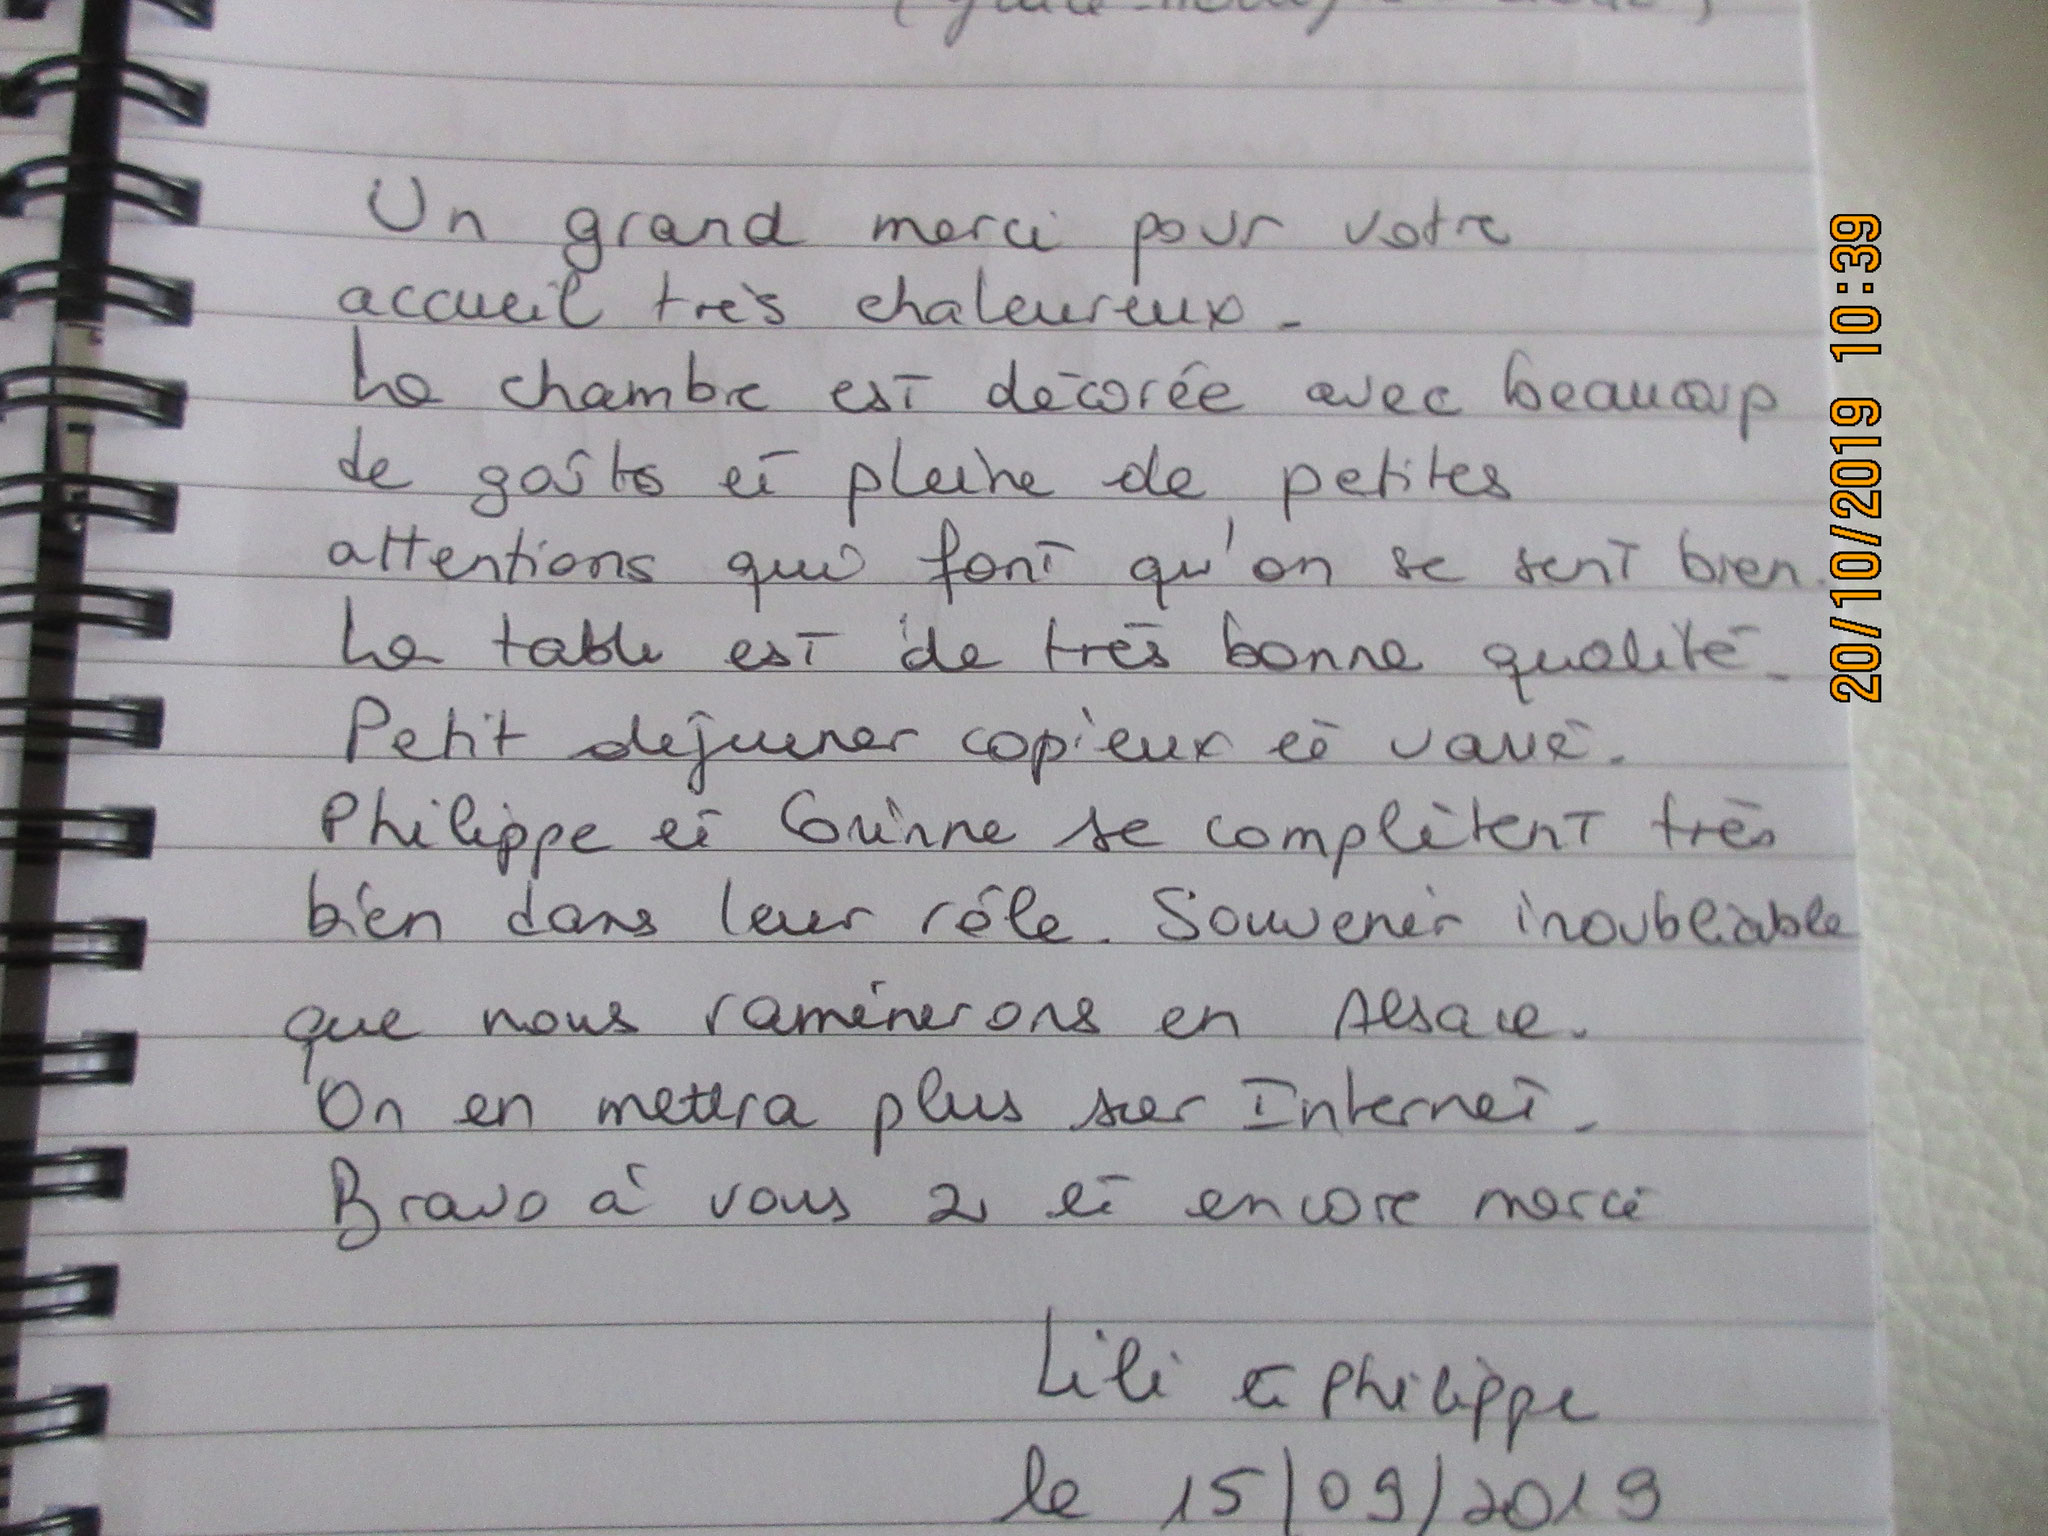 Un grand merci pour votre
accueil très chaleureux.
La chambre est décorée avec beaucoup
de goûts et pleine de petites
attentions qui font qu'on se sent bien.
La table est de très bonne qualité.
Petit déjeuner copieux et varié.
Philippe et Corinne se complètent très
bien dans leur rôle. Souvenir inoubliable
que nous ramènerons en Alsace.
On en mettra plus sur Internet.
Bravo à vous 2 et encore merci
Lili et Philippe
le 15/09/2019
20/10/2019 10:39